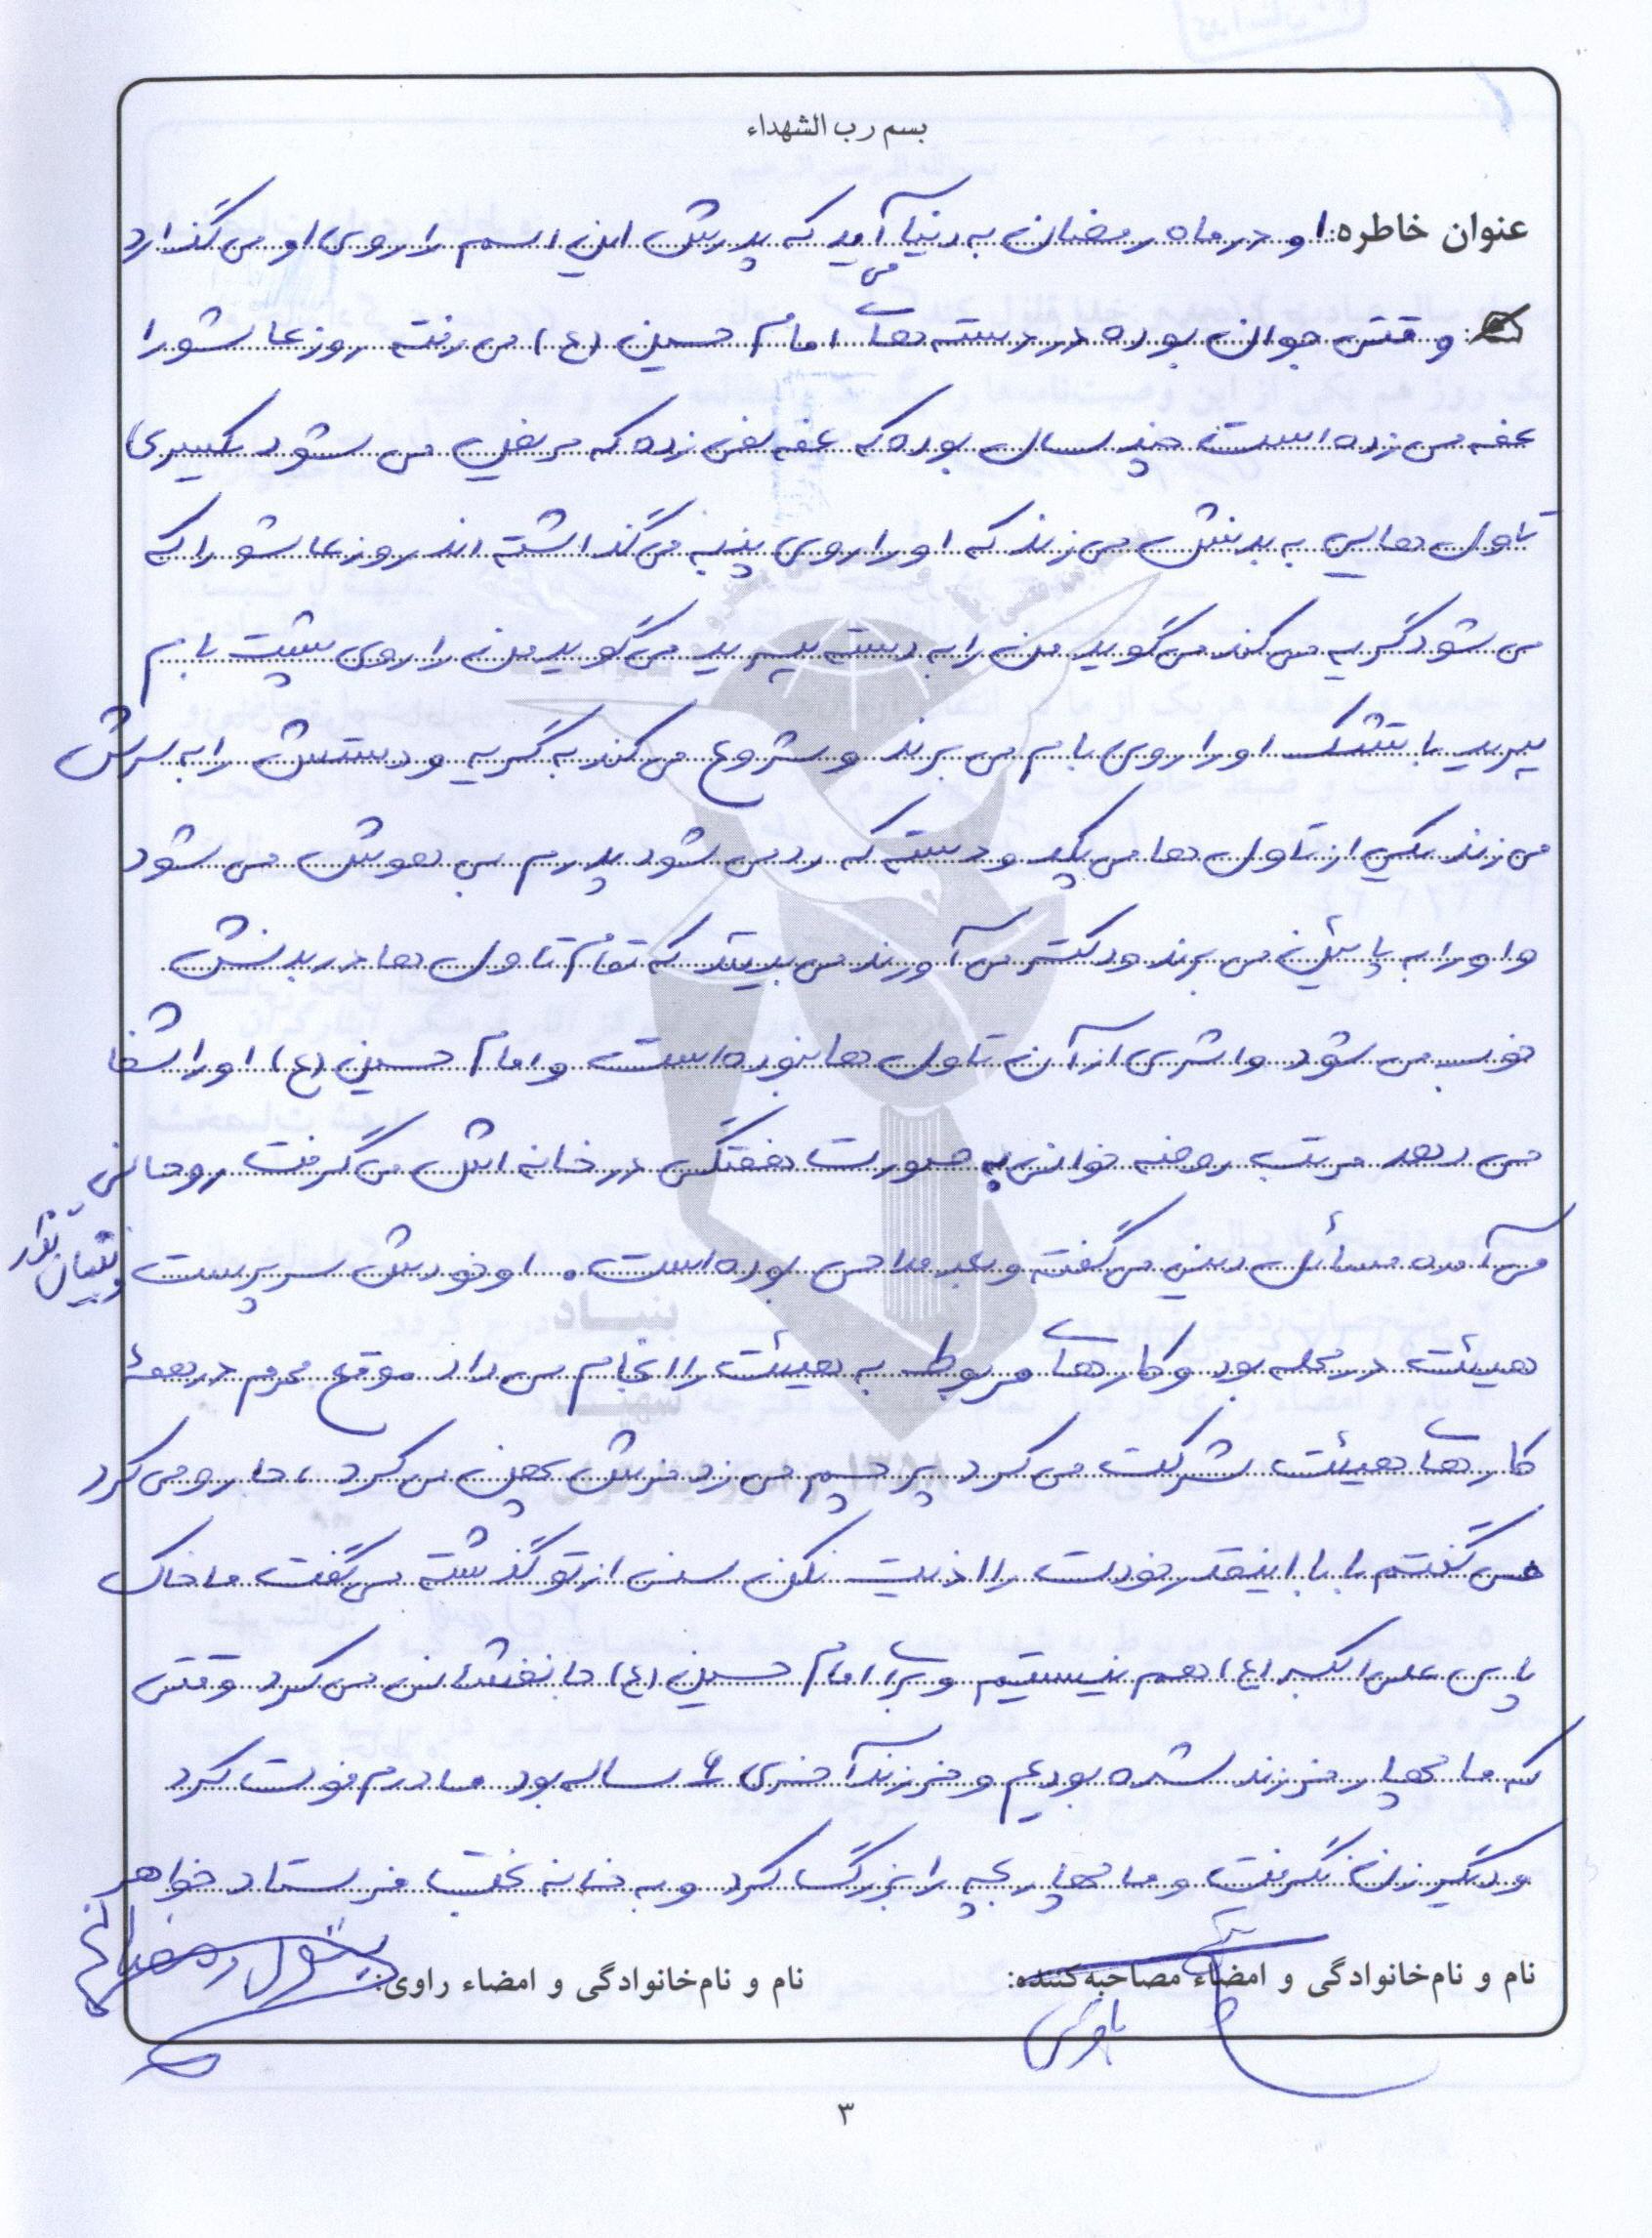 بسم رب الشهداء
عنوان خاطره: او در ماه رمضان به دنیا آمد که پدرش این اسم را روی او می گذارد
وقتی جوان بوده در دسته های امام حسین (ع) می رفته روز عاشورا
غمه می زده است چند سال بوده که غمه نمی زده که مریض می شود یکسری
تاول هایی به بدنش می زند که او را روی پنبه می گذاشته اند روز عاشورا که
می شود گریه می کند می گوید من را به دسته ببرید می گوید من را روی پشت بام
ببرید با تشک او را روی بام می برند و شروع می کند به گریه و دستش را به سرش
می زند یکی از تاول ها می ترکد و دسته که رد می شود پدرم بی هوش می شود
و او را به پائین می برند و دکتر می آورند می بینند که تمام تاول ها در بدنش
خوب می شود و اثری از آن تاول ها نبوده است و امام حسین (ع) او را شفا
می دهد مرتب روضه خوانی به صورت هفتگی در خانه اش می گرفت روحانی
می آمده مسائل دینی می گفته و بعد مداحی بوده است. او خودش سرپرست
هیئت در محله بود و کارهای مربوط به هیئت را انجام می داد موقع محرم در همهٔ
کارهای هیئت شرکت می کرد پرچم می زد فرش پهن می کرد، جارو می کرد
می گفتم بابا اینقدر خودت را اذیت نکن سنی از تو گذشته می گفت ما خاک
پای علی اکبر (ع) هم نیستیم و برای امام حسین (ع) جانفشانی می کرد وقتی
که ما چهار فرزند شده بودیم و فرزند آخری ۶ ساله بود مادرم فوت کرد
و دیگر زن نگرفت و ما چهار بچه را بزرگ کرد و به خانه بخت فرستاد خواهر
نام و نام‌خانوادگی و امضاء مصاحبه‌کننده:
نام و نام‌خانوادگی و امضاء راوی: بتول رمضانی
بنیاد
شهید
۳